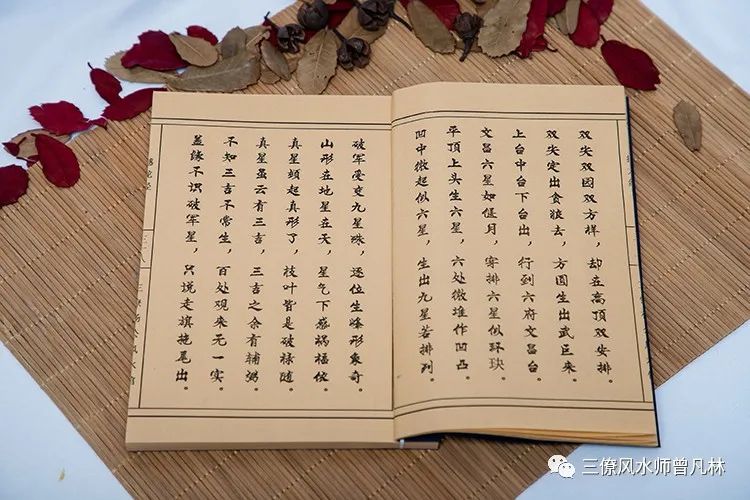 双尖双圆双方样，却在高顶双安排。
双尖定出贪狼去，方圆生出武巨来。
上台中台下台出，行到六府文昌台。
文昌六星如偃月，穿排六星似环玦。
平顶上头生六星，六处微堆作凹凸。
凹中微起似六星，生出九星若排列。
破军受变九星殊，逐位生峰形象奇。
山形在地星在天，星气下感祸福依。
真星频起真形了，枝叶皆是破禄随。
真星虽云有三吉，三吉之余有辅弼。
不知三吉不常生，百处观来无一实。
盖缘不识破军星，只说走旗拖尾出。
三僚风水师曾凡林